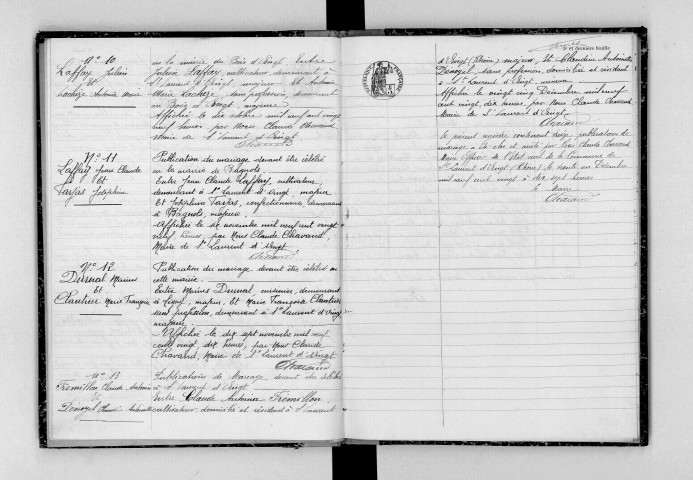 N° 10
Laffay Julien
et
Lachize Antonia Marie
en la mairie du Bois d'Oingt. Entre
Julien Laffay, cultivateur, demeurant à
St Laurent d'Oingt, majeur et Antonia
Marie Lachize, sans profession, demeurant
au Bois d'Oingt, majeure
Affichée le dix octobre mil neuf cent vingt
neuf heures, par Nous Claude Chavand
Maire de St Laurent d'Oingt
Chavand
N° 11
Laffay Jean Claude
et
Josephine
Publication du mariage devant être célébré
en la mairie de Bagnols.
Entre Jean Claude Laffay, cultivateur,
demeurant à St Laurent d'Oingt, majeur
et Joséphine, confectionneuse, demeurant
à Bagnols, majeure.
Affichée le six novembre mil neuf cent vingt
neuf heures, par Nous Claude Chavand,
Maire de St Laurent d'Oingt
Chavand
N° 12
Marius
et
Marie Françoise
Publication du mariage devant être célébré en
cette mairie.
Entre Marius, demeurant
à, majeur, et Marie Françoise
sans profession, demeurant à St Laurent d'Oingt
majeure
Affichée le dix sept novembre mil neuf
cent vingt, dix heures, par Nous Claude
Chavand, Maire de St Laurent d'Oingt
Chavand
N° 13
Tremillon Claude Antonin
et
Denoyel Antoinette
Publications de Mariage devant être célébré
à St Laurent d'Oingt
Entre Claude Antonin Tremillon,
cultivateur, domicilié et résidant à St Laurent
et dernière feuille
d'Oingt (Rhône) majeur, et Claudine Antoinette
Denoyel, sans profession, domiciliée et résidant
à St Laurent d'Oingt, mineure
Affichée le vingt cinq Décembre mil neuf
cent vingt, dix heures, par Nous Claude Chavand
Maire de St Laurent d'Oingt.
Chavand
Le présent registre contenant treize publications de
mariage a été clos et arrêté par Nous Claude Chavand
Maire Officier de l'Etat civil de la Commune de
St Laurent d'Oingt (Rhône) le trente un Décembre
mil neuf cent vingt à dix sept heures
Le Maire
Chavand